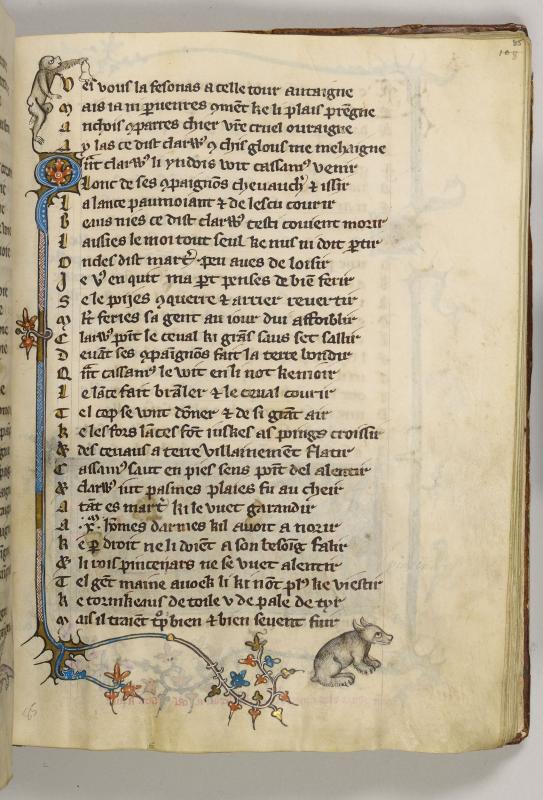 85
108
V ei vous la fesonas a celle tour autaigne
M ais ia ni ꝑuenres ꝯment ke li plais prēgne
A nchois ꝯparres chier vrē cruel ouraigne
A y las ce dist clarꝰ ꝯ chis glous me mehaigne
Qn̄t clarꝰ li yndois voit cassamꝰ venir
L onc de ses ꝯpaignōs cheuauchr̄ & issir
L a lance paumoiant & de lescu courir
B eaus nies ce dist clarꝰ cesti couient morir
L aissies le moi tout seul ke nus ni doit ꝑtir
O ndes dist marcͥ peu aues de loisir
J e v̄ en quit ma ꝑt penses de biē ferir
S e le poijes ꝯquerre & arrier reuertir
M lt̄ feries sa gent au iour dui affoiblir
C larꝰ point le ceual ki grās saus set sallir
D euāt ses ꝯpaignōs fait la terre bondir
Q n̄t cassamꝰ le voit en li not kemoir
L e lāce fait brāler & le ceual courir
T el cop se vont dōner & de si grāt air
K e les fors lāces fōt iuskes as poings croissir
& des ceuaus a terre villainement flatir
C assamꝰ saut en pies sens point del alentir
& clarꝰ iut pasmes plaies fu au cheir
A tāt es marcͥ ki le vuet garandir
A .xͫ. hōmes darmes kil auoit a norir
K e ꝑ droit ne li doiēt a son besoīg falir
& li rois pincenars ne se vuet alentir
T el gēt maine auoek li ki nōt plꝰ ke viestir
K e tornikeaus de toile v de pale de tyr
M ais il traiēt tp̄ bien & bien seuent fuir